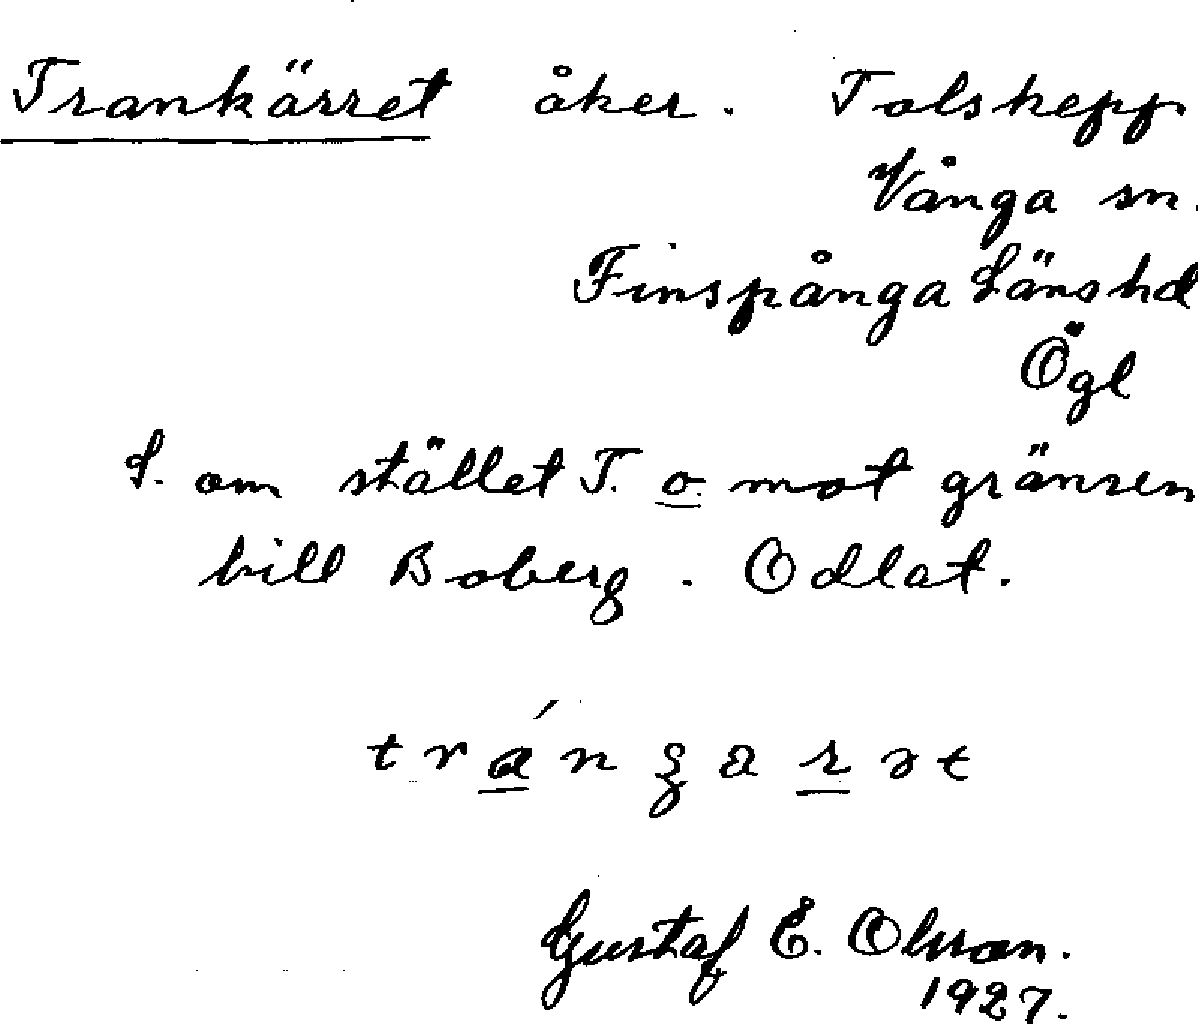 Trankärret åker. Tolskepp
Vånga sn.
Finspånga länshd
Ögl
S. om stället T. o. mot gränsen
till Boberg. Odlat.
Gustaf E. Olsson.
1927.